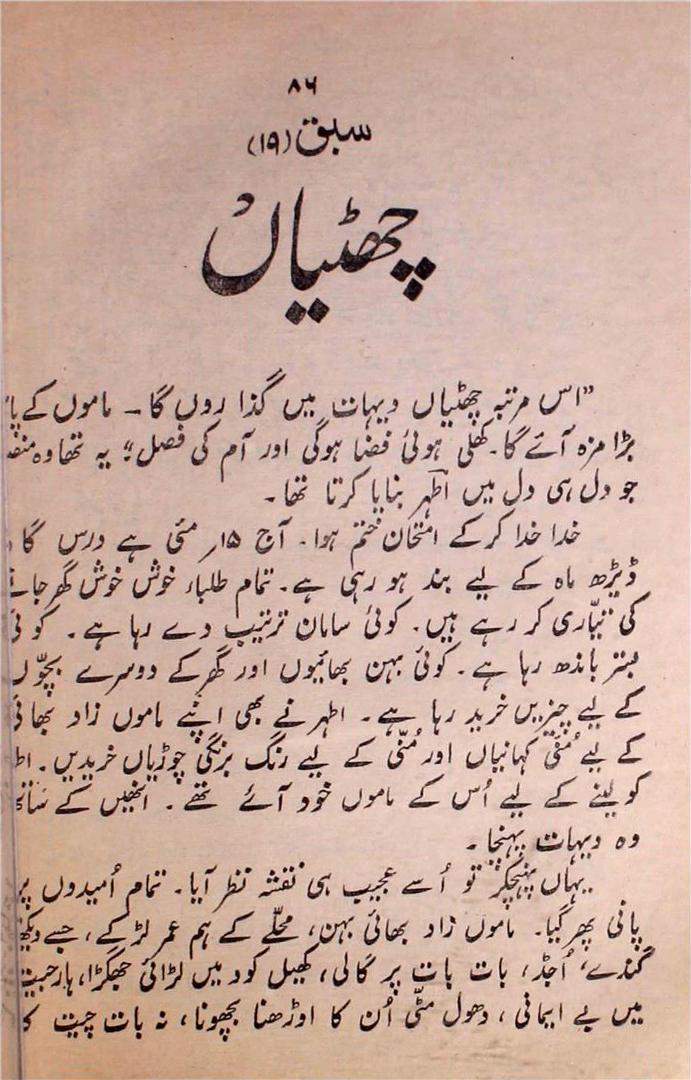 ۸۶
سبق (۱۹)
چھٹیاں
”اس مرتبہ چھٹیاں دیہات میں گذاروں گا۔ ماموں کے
بڑا مزہ آئے گا۔ کھلی ہوئی فضا ہوگی اور آم کی فصل“؛ یہ تھا وہ
جو دل ہی دل میں اطہر بنایا کرتا تھا۔
خدا خدا کرکے امتحان ختم ہوا۔ آج ۱۵؍ مئی ہے درس گا
ڈیڑھ ماہ کے لیے بند ہو رہی ہے۔ تمام طلباء خوش خوش گھر جانے
کی تیّاری کر رہے ہیں۔ کوئی سامان ترتیب دے رہا ہے۔ کوئی
بستر باندھ رہا ہے۔ کوئی بہن بھائیوں اور گھر کے دوسرے بچّوں
کے لیے چیزیں خرید رہا ہے۔ اطہر نے بھی اپنے ماموں زاد بھائی
کے لیے کہانیاں اور مُنّی کے لیے رنگ برنگی چوڑیاں خریدیں۔ اط
کو لینے کے لیے اُس کے ماموں خود آئے تھے۔ انھیں کے ساتھ
وہ دیہات پہنچا۔
یہاں پہنچکر تو اُسے عجیب ہی نقشہ نظر آیا۔ تمام اُمیدوں پر
پانی پھر گیا۔ ماموں زاد بھائی بہن، محلّے کے ہم عمر لڑکے، جسے دیکھ
گندے، اُجڈ، بات بات پر گالی، کھیل کود میں لڑائی جھگڑا، ہار جیت
میں بے ایمانی، دھول مٹّی اُن کا اوڑھنا بچھونا، نہ بات چیت کا